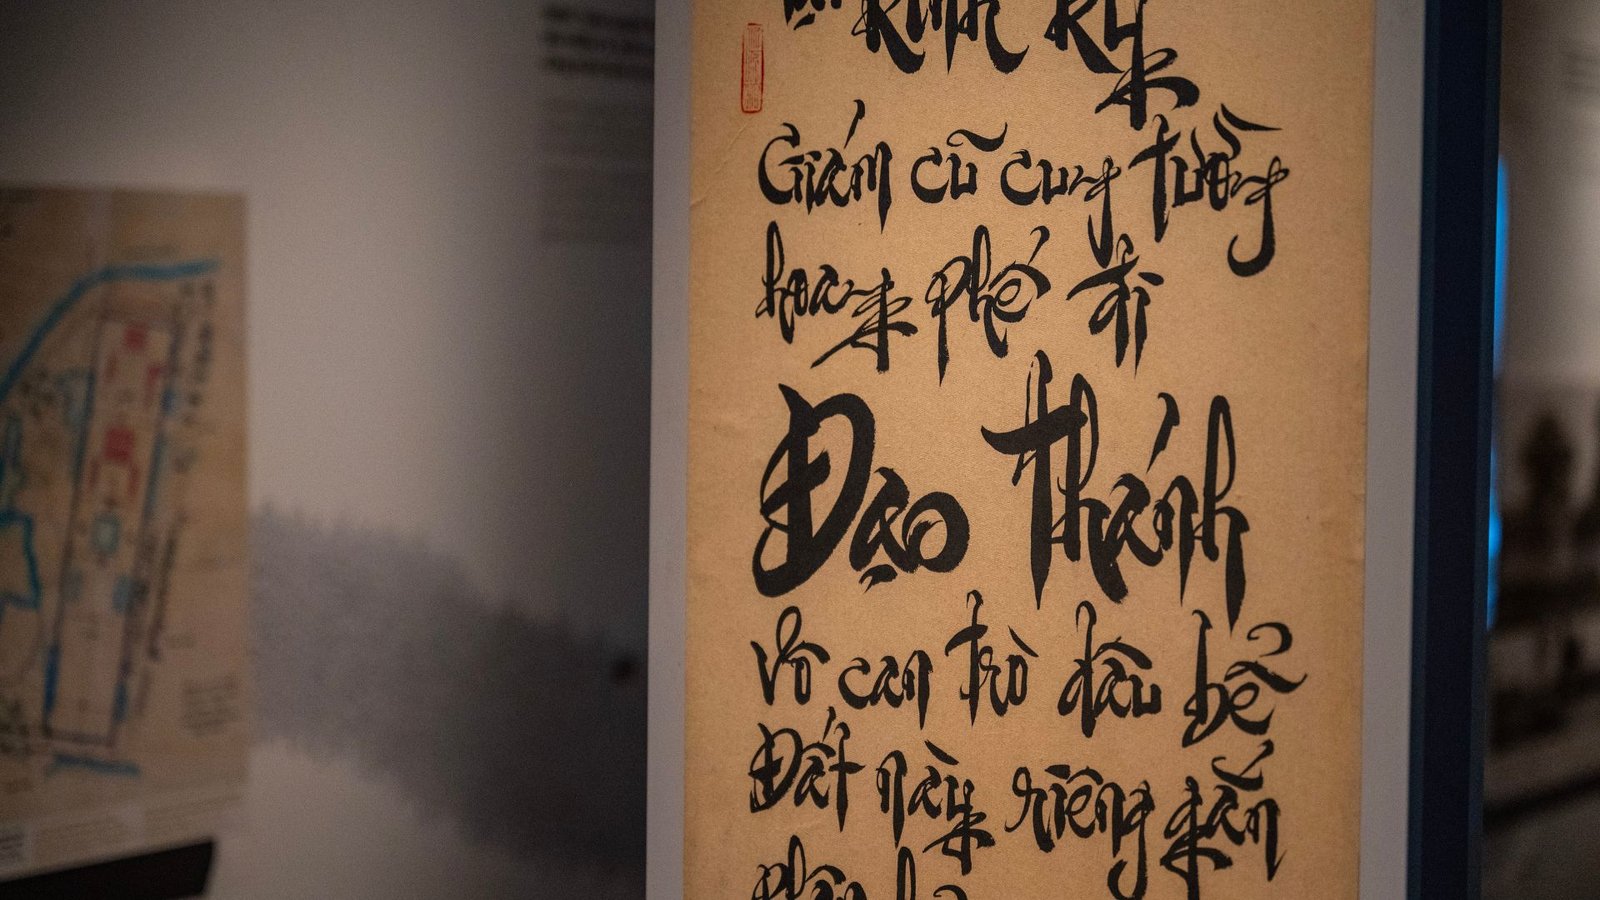 kinh kỳ
Giám cũ cung tường
hoang phế đi
Đạo Thánh
Vô can trò dâu bể
Đất này riêng gắn